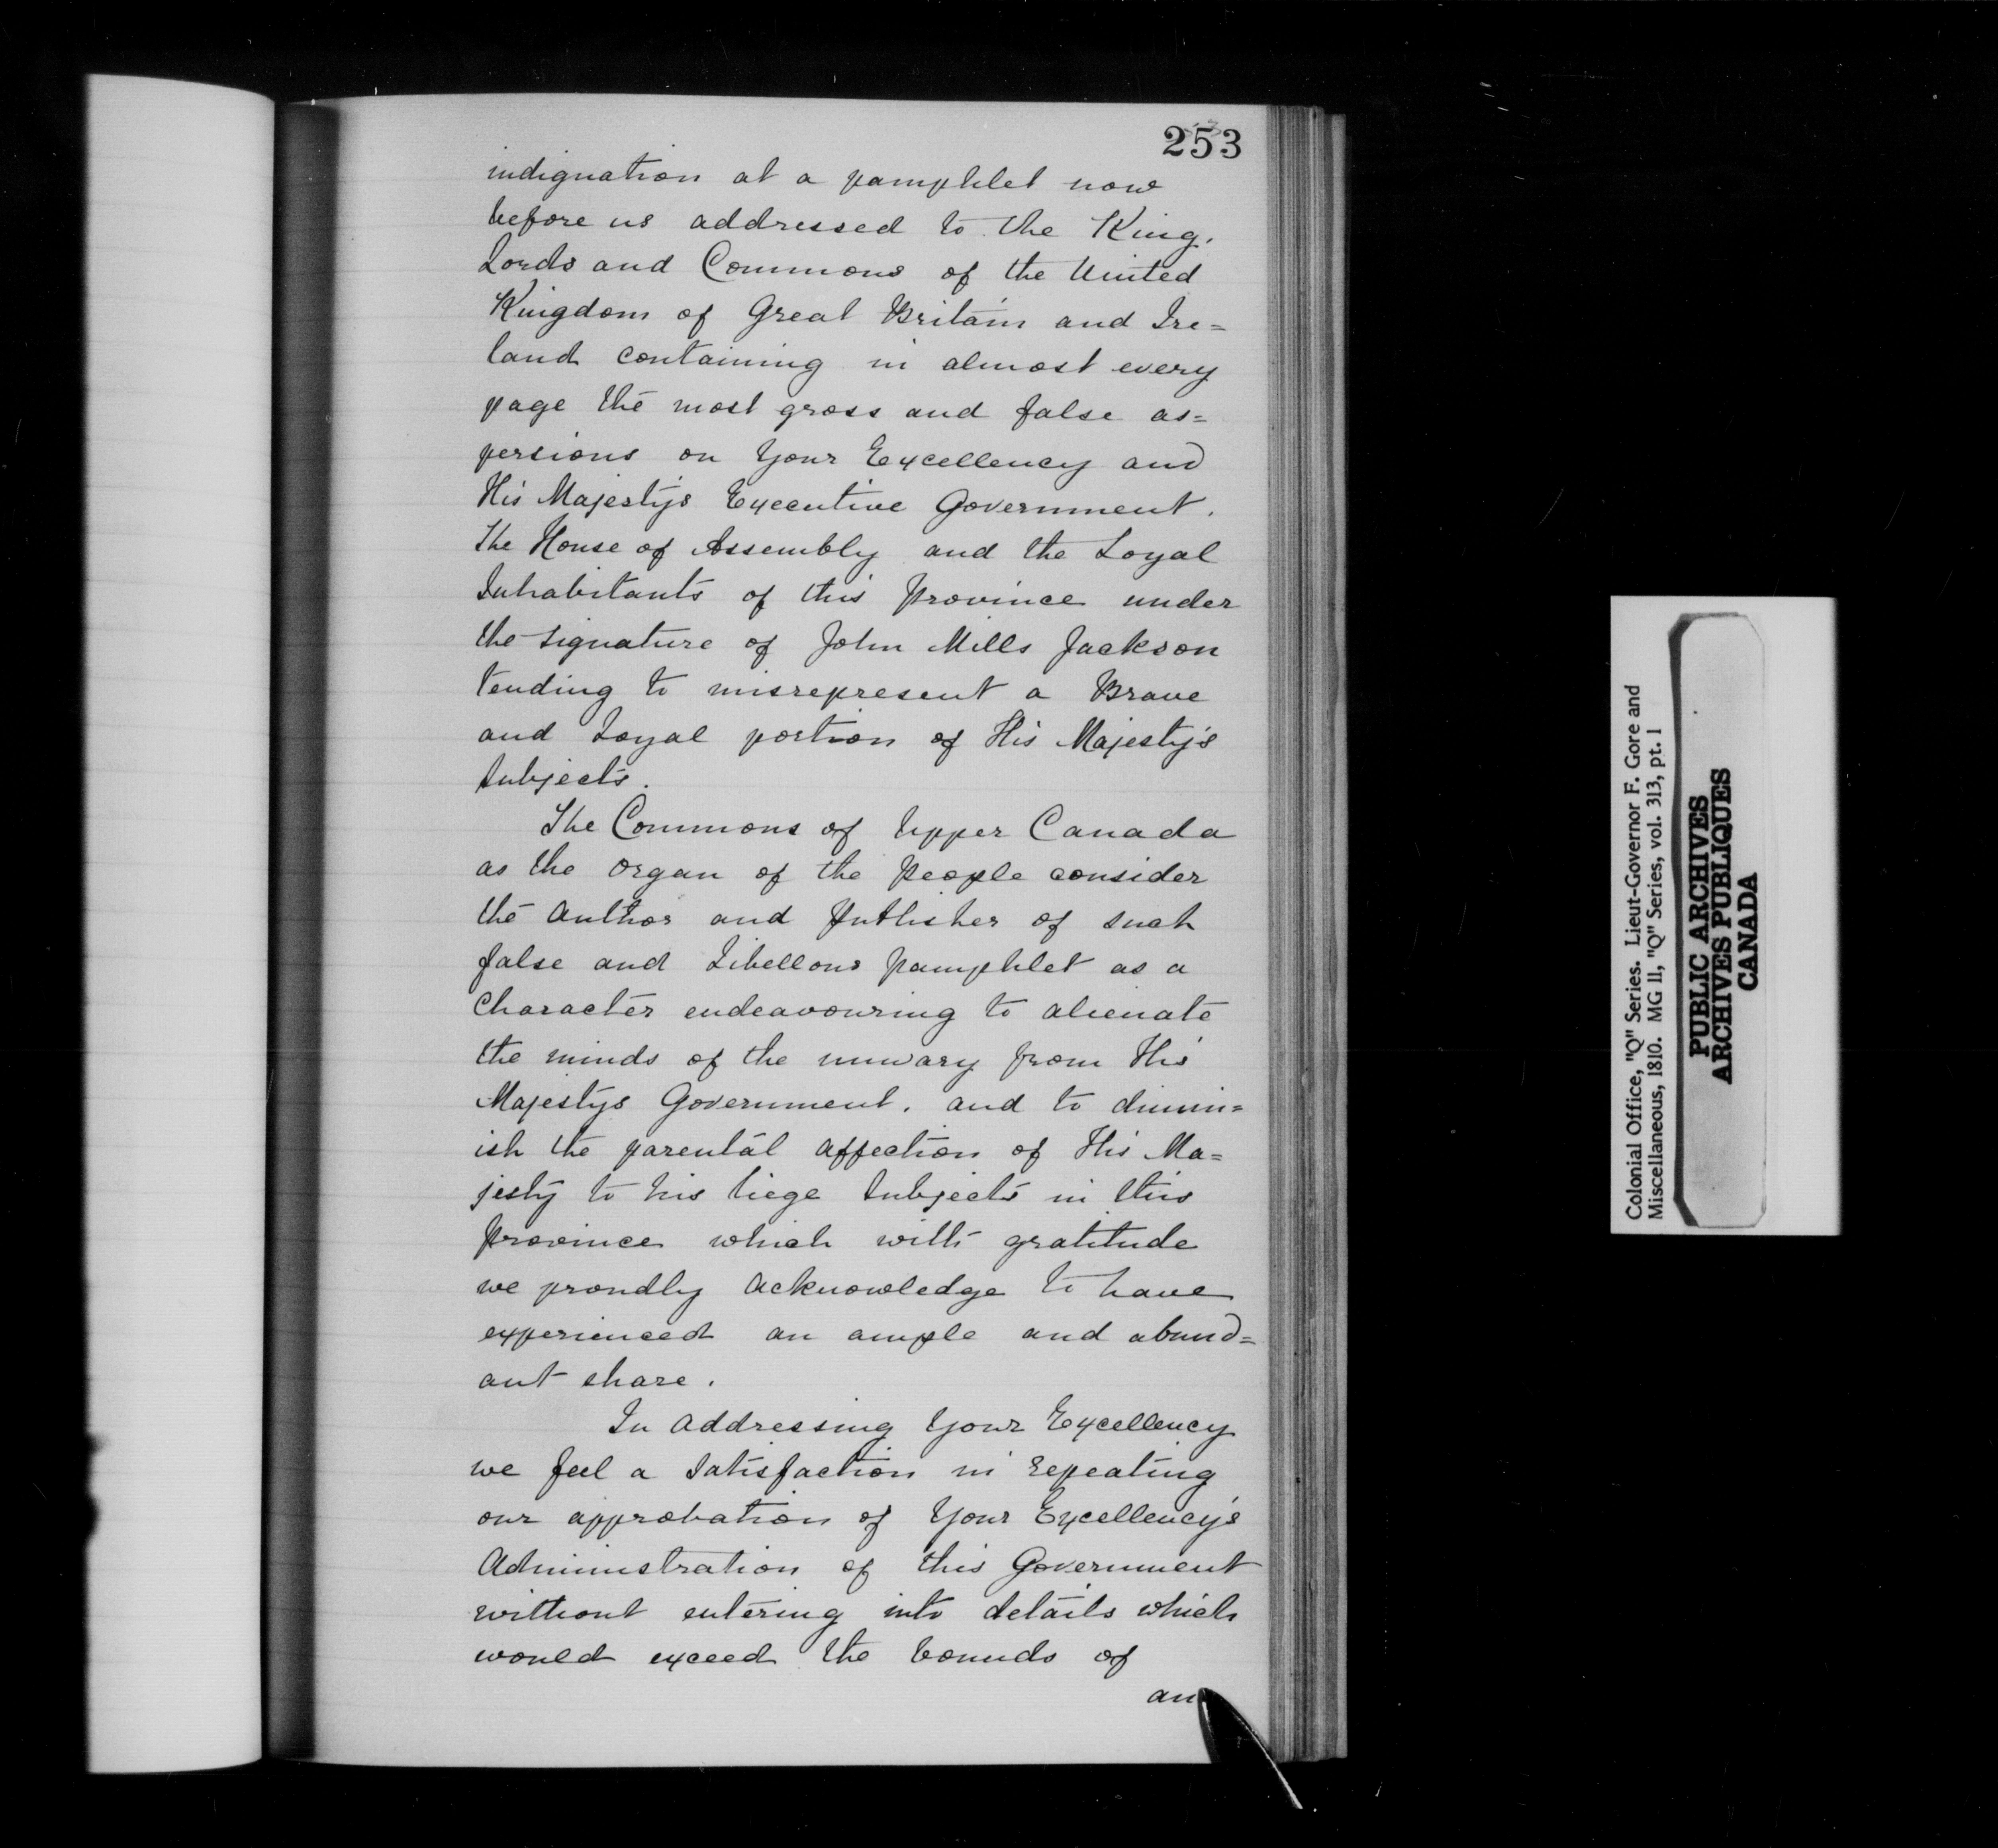 253
indignation at a pamphlet now
before us addressed to the King,
Lords and Commons of the United
Kingdom of Great Britain and Ire=
land containing in almost every
page the most gross and false as=
persions on Your Excellency and
His Majestys Executive Government,
the House of Assembly and the Loyal
Inhabitants of this Province under
the Signature of John Mills Jackson
tending to misrepresent a Brave
and Loyal portion of His Majesty's
Subjects.
The Commons of Upper Canada
as the Organ of the People consider
the Author and Publisher of such
false and Libellous Pamphlet as a
Character endeavouring to alienate
the minds of the unwary from His
Majestys Government, and to dimin=
ish the parental affection of His Ma=
jesty to his liege Subjects in this
Province which with gratitude
we proudly acknowledge to have
experienced an ample and abund=
ant share.
In addressing Your Excellency
we feel a Satisfaction in repeating
our approbation of Your Excellency's
Administration of this Government
without entering into details which
would exceed the bounds of
an
Colonial Office, "Q" Series. Lieut-Governor F. Gore and
Miscellaneous, 1810. MG 11, "Q" Series, vol. 313, pt. 1
PUBLIC ARCHIVES
ARCHIVES PUBLIQUES
CANADA